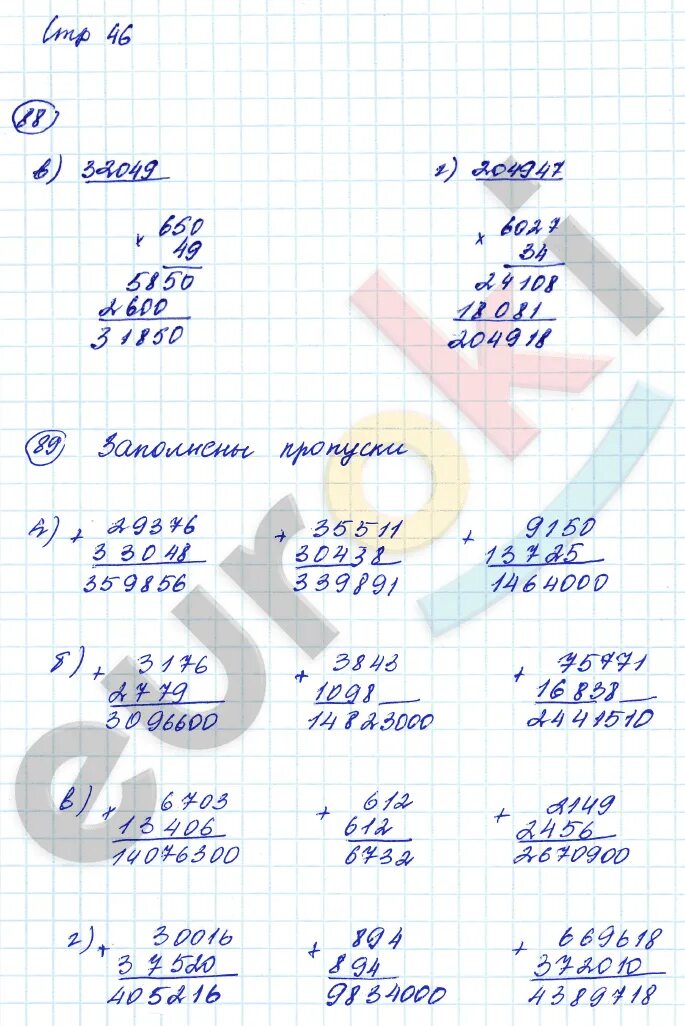 Стр 46
88
в) 32049
г) 204947
× 650
49
5850
2600
31850
× 6027
34
24108
18081
204918
89 Заполнены пропуски
а) + 29376
33048
359856
+ 35511
30438
339891
+ 9150
13725
1464000
б) + 3176
2779
3096600
+ 3843
1098
14823000
+ 75771
16838
2441510
в) + 6703
13406
14076300
+ 612
612
6732
+ 2149
2456
2670900
г) + 30016
37520
405216
+ 894
894
9834000
+ 669618
372010
4389718
euroki